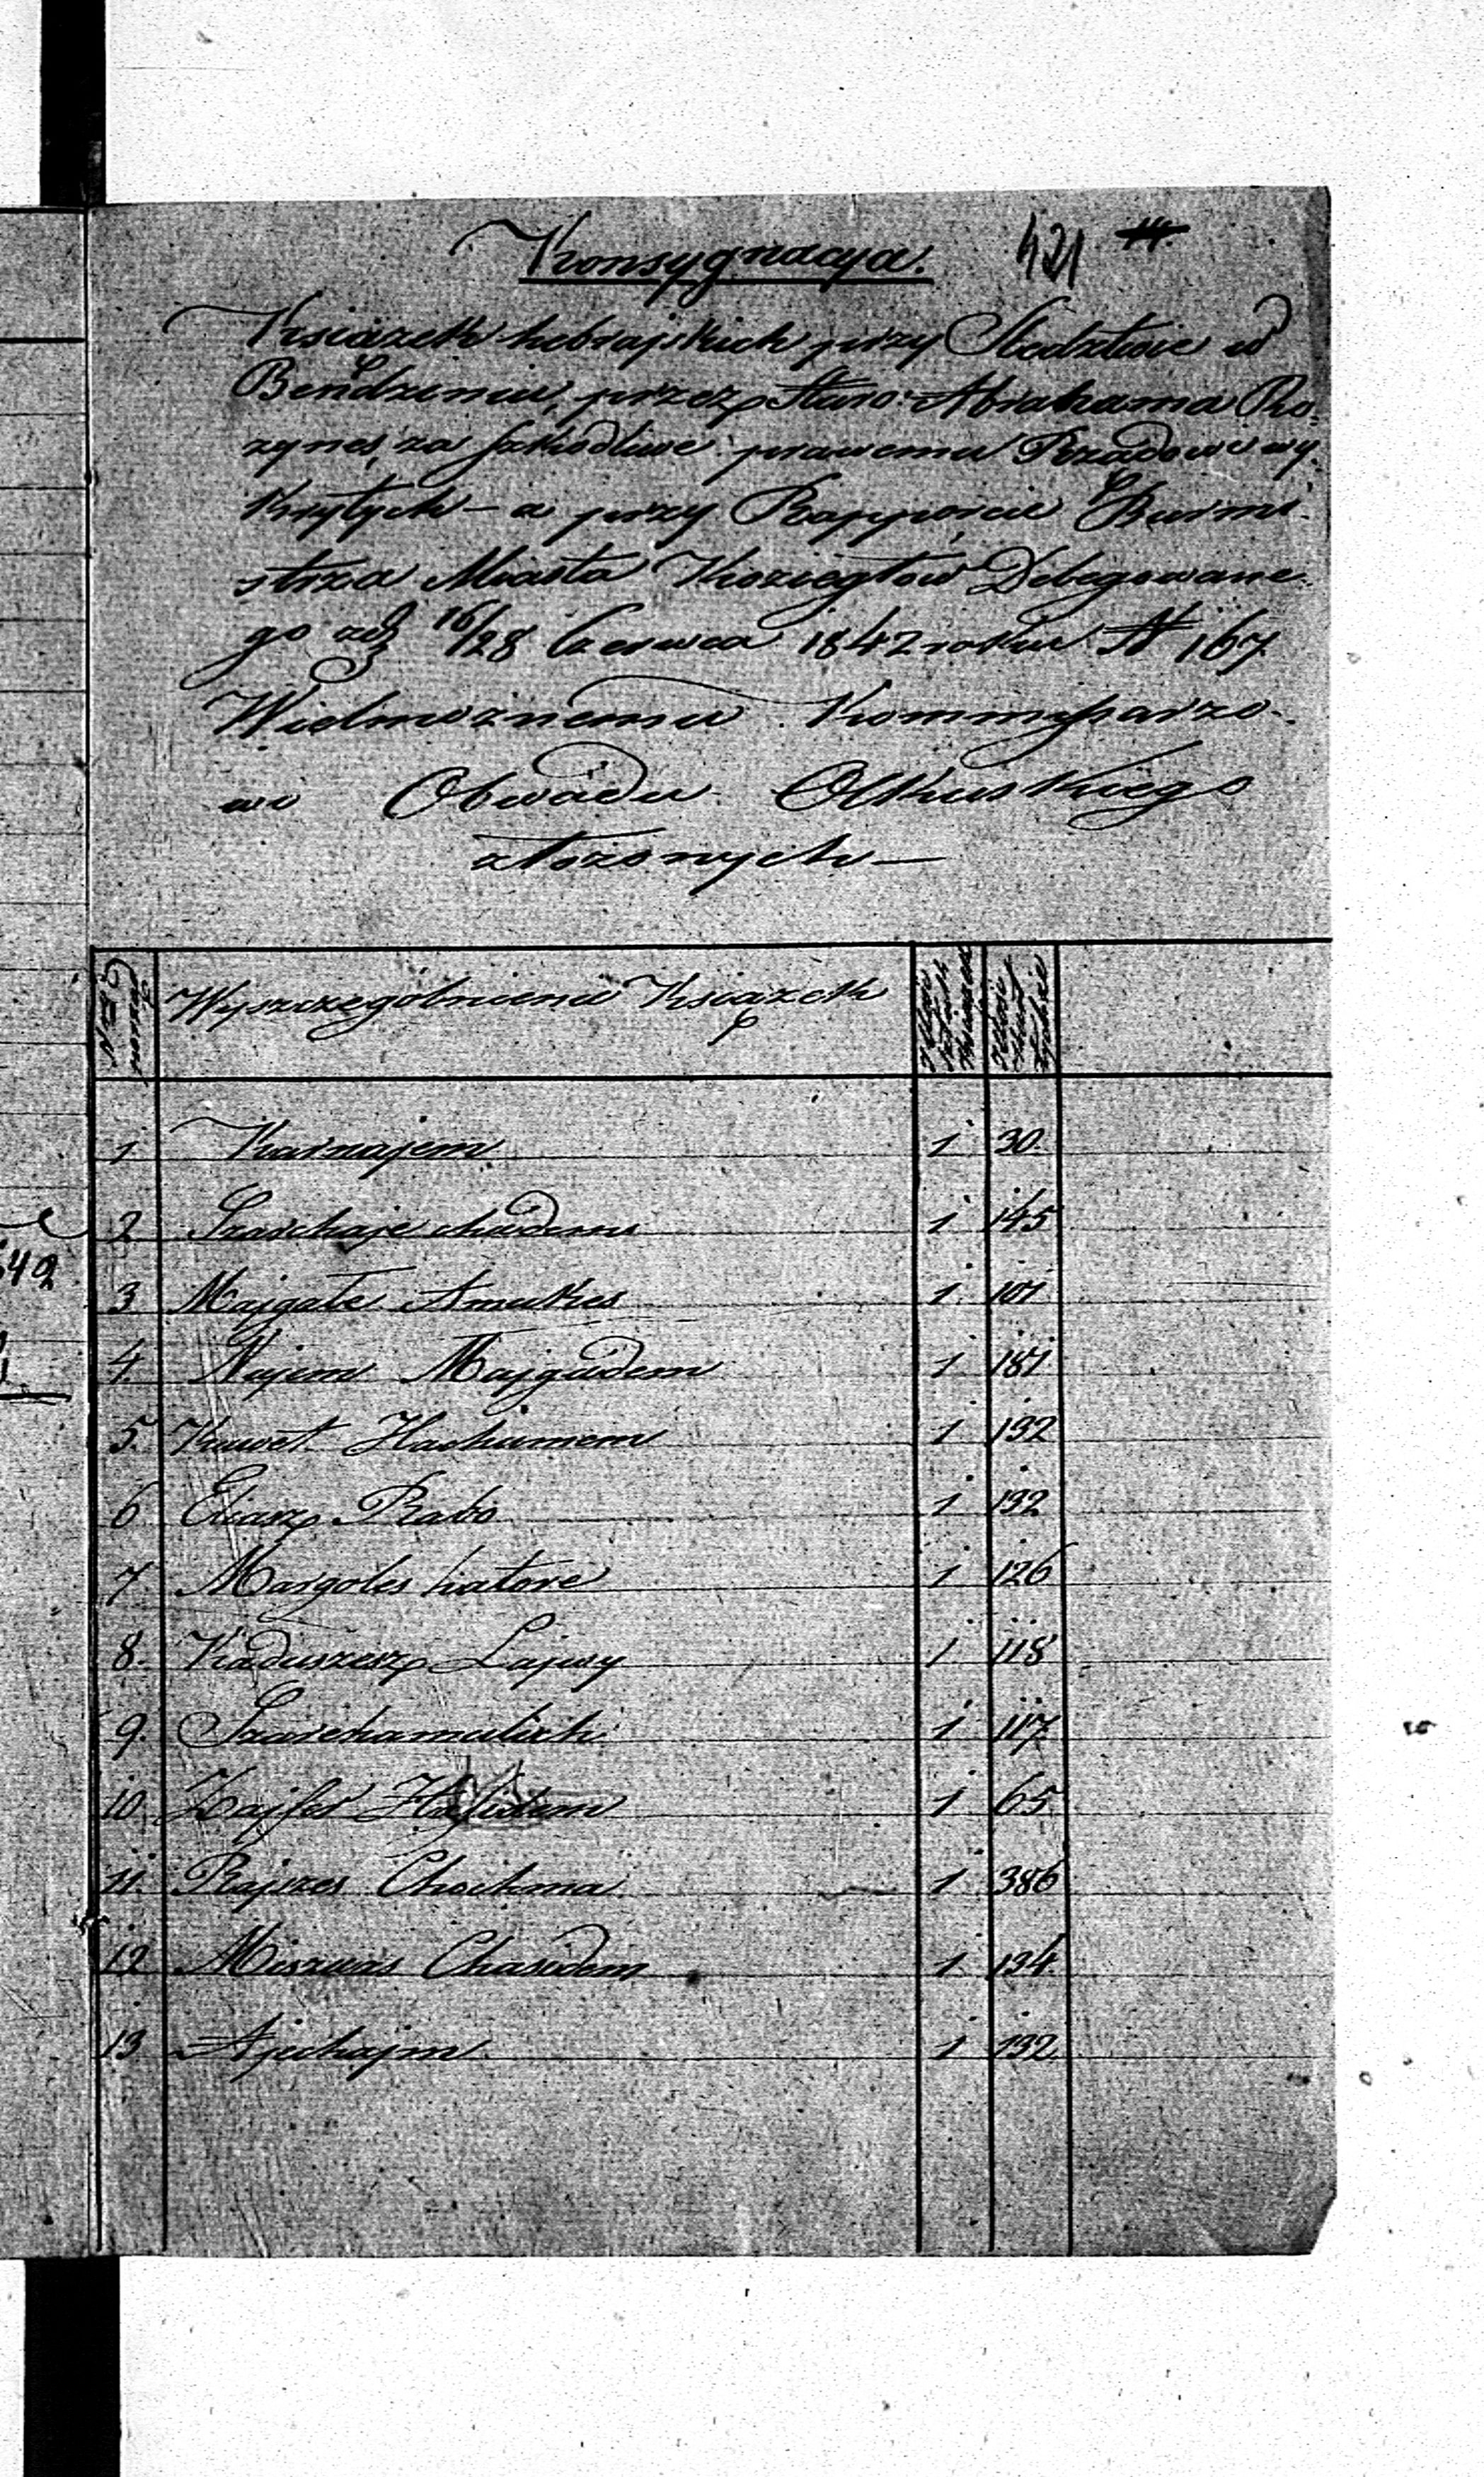 Konsygnacya. 421
Książek hebrajskich przy Sledztwie w
Bendzinie, przez Staro: Abrahama Ro-
zynes, za szkodliwe prawemu Rządowi wy-
krytych – a przy Rapporcie Burmi-
strza Miasta Koziegłow Delegowane-
go zd 16/28 Czerwca 1842 roku N 167
Wielmoznemu Kommissarzo-
wi Obwodu Olkuskiego
złożonych –
Wyszczególnienie Książek
1 Karnajem 1 30
2 Szarchaje chudem 1 145
3 Majgale Amukes 1 101
4 Najem Majgudem 1 181
5 Kuwet Hachumem 1 132
6 Eliasz Rabo 1 132
7 Margoles hatore 1 126
8. Kaduszesz Lajwy 1 118
9. Szarchamulich 1 117
10. Zajfer 1 65
11. Rajszes Chochma 1 386
12 Misznas Chasudem 1 134
13 Ajechajm 1 132
542